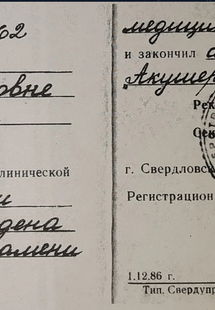 62
овне
линической
и
дена
амени
медици
и закончил
"Акушер
Рек
Сек
г. Свердловс
Регистрацион
1.12.86 г.
Тип. Свердупр